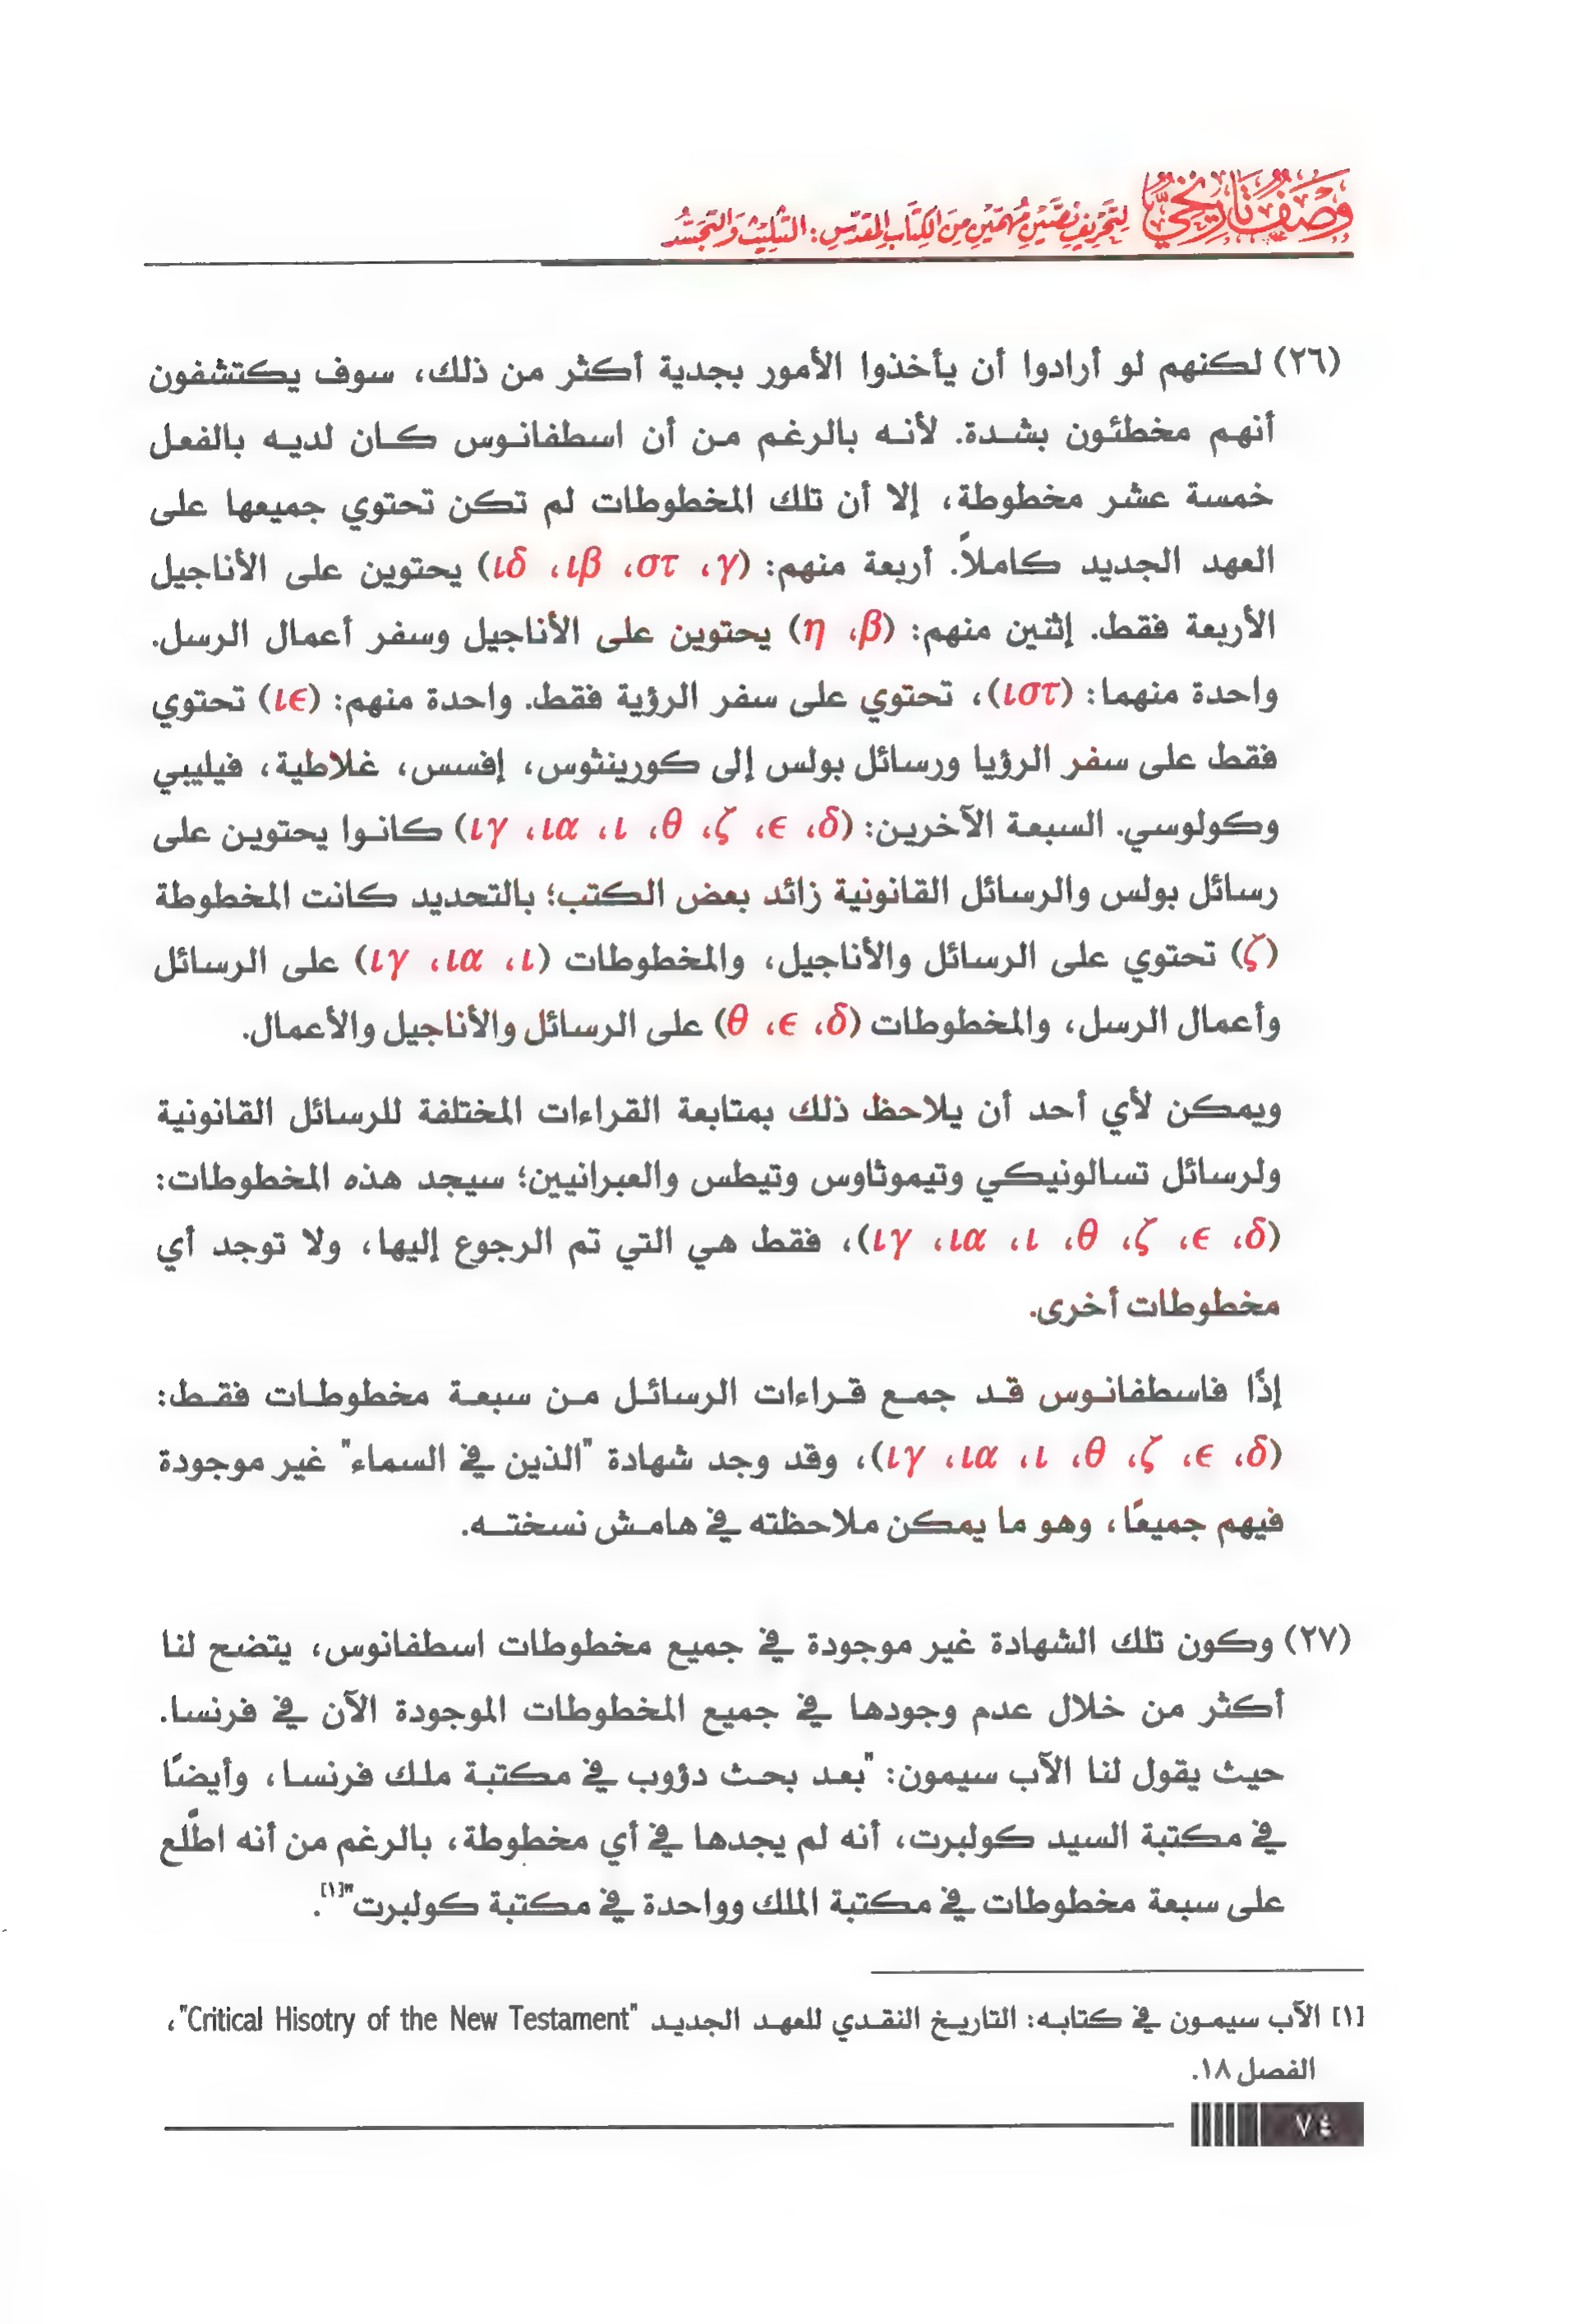 وَصْفٌ تَارِيخِيٌّ لِتَحْرِيفِ نَصَّيْنِ مُهِمَّيْنِ مِنَ الكِتَابِ المُقَدَّسِ: التَّثْلِيثُ وَالتَّجَسُّدُ
(٢٦) لكنهم لو أرادوا أن يأخذوا الأمور بجدية أكثر من ذلك، سوف يكتشفون
أنهم مخطئون بشدة. لأنه بالرغم من أن اسطفانوس كان لديه بالفعل
خمسة عشر مخطوطة، إلا أن تلك المخطوطات لم تكن تحتوي جميعها على
العهد الجديد كاملاً. أربعة منهم: (γ، στ، ιβ، ιδ) يحتوين على الأناجيل
الأربعة فقط. إثنين منهم: (β، η) يحتوين على الأناجيل وسفر أعمال الرسل.
واحدة منهما: (ιστ)، تحتوي على سفر الرؤية فقط. واحدة منهم: (ιϵ) تحتوي
فقط على سفر الرؤيا ورسائل بولس إلى كورينثوس، إفسس، غلاطية، فيليبي
وكولوسي. السبعة الآخرين: (δ، ϵ، ζ، θ، ι، ια، ιγ) كانوا يحتوين على
رسائل بولس والرسائل القانونية زائد بعض الكتب؛ بالتحديد كانت المخطوطة
(ζ) تحتوي على الرسائل والأناجيل، والمخطوطات (ι، ια، ιγ) على الرسائل
وأعمال الرسل، والمخطوطات (δ، ϵ، θ) على الرسائل والأناجيل والأعمال.
ويمكن لأي أحد أن يلاحظ ذلك بمتابعة القراءات المختلفة للرسائل القانونية
ولرسائل تسالونيكي وتيموثاوس وتيطس والعبرانيين؛ سيجد هذه المخطوطات:
(δ، ϵ، ζ، θ، ι، ια، ιγ)، فقط هي التي تم الرجوع إليها، ولا توجد أي
مخطوطات أخرى.
إذًا فاسطفانوس قد جمع قراءات الرسائل من سبعة مخطوطات فقط:
(δ، ϵ، ζ، θ، ι، ια، ιγ)، وقد وجد شهادة "الذين في السماء" غير موجودة
فيهم جميعًا، وهو ما يمكن ملاحظته في هامش نسخته.
(٢٧) وكون تلك الشهادة غير موجودة في جميع مخطوطات اسطفانوس، يتضح لنا
أكثر من خلال عدم وجودها في جميع المخطوطات الموجودة الآن في فرنسا.
حيث يقول لنا الآب سيمون: "بعد بحث دؤوب في مكتبة ملك فرنسا، وأيضًا
في مكتبة السيد كولبرت، أنه لم يجدها في أي مخطوطة، بالرغم من أنه اطّلع
على سبعة مخطوطات في مكتبة الملك وواحدة في مكتبة كولبرت"[١].
[١] الآب سيمون في كتابه: التاريخ النقدي للعهد الجديد "Critical Hisotry of the New Testament"،
الفصل ١٨.
٧٤